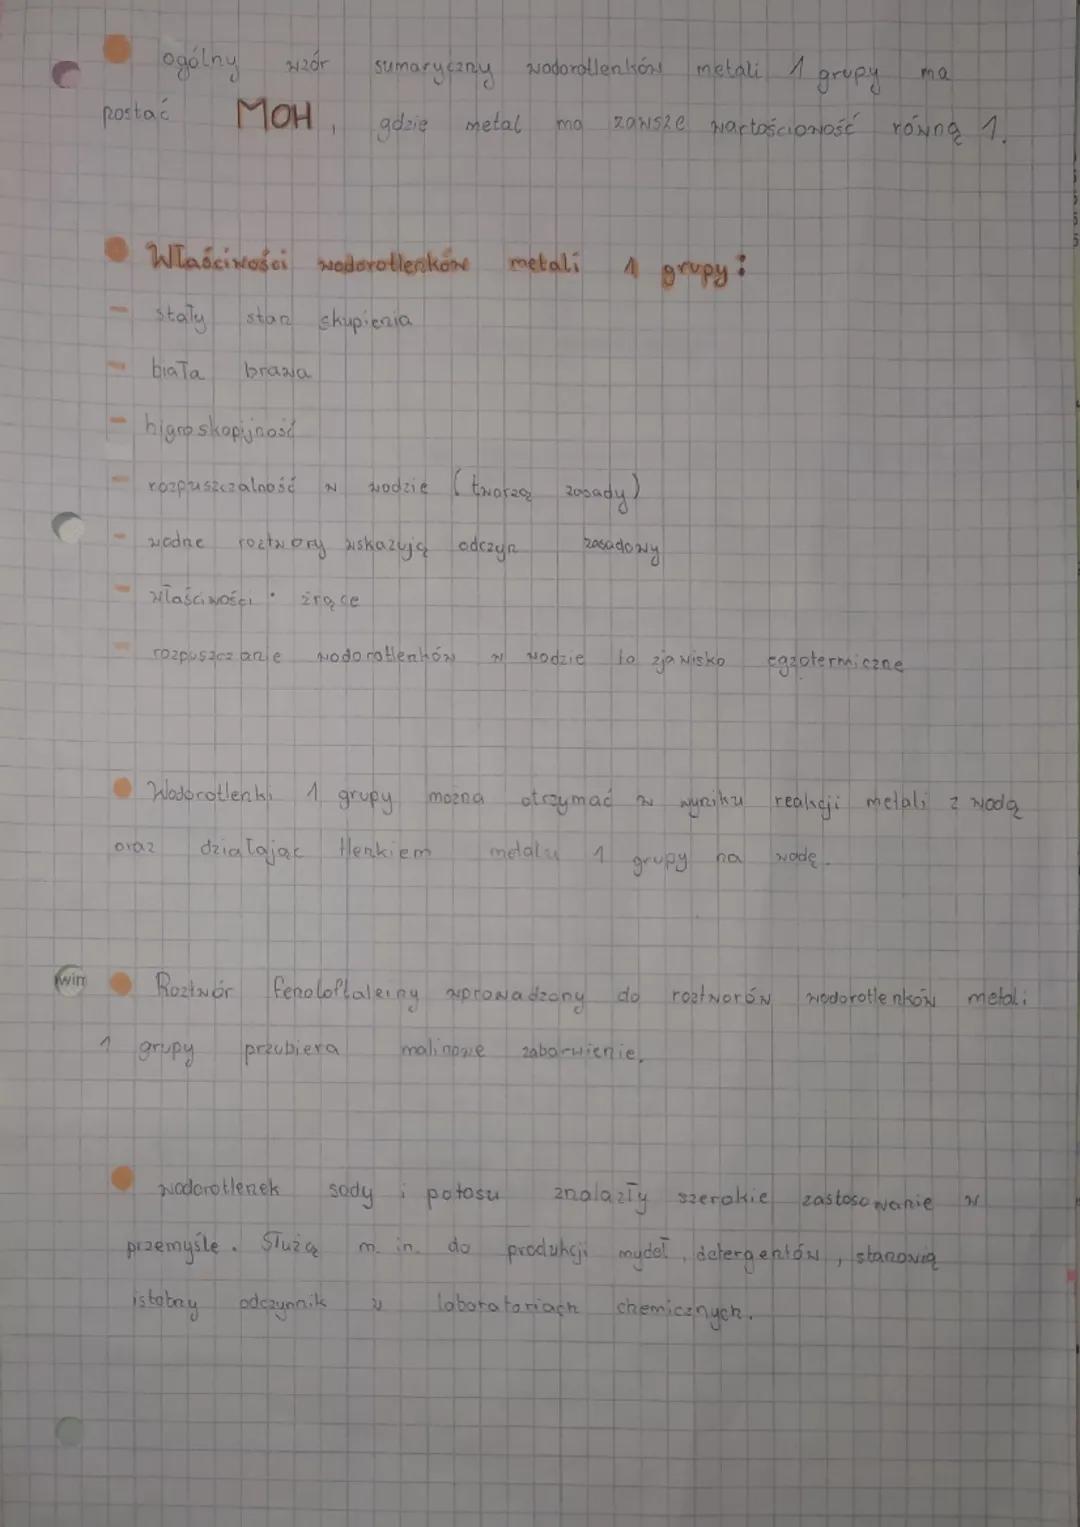 ogólny wzór sumaryczny wodorotlenków metali 1 grupy ma
postać MOH, gdzie metal ma zawsze wartościowość równą 1.
Właściwości wodorotlenków metali 1 grupy:
- stały stan skupienia
- biała brawa
- higroskopijność
- rozpuszczalność w wodzie (tworzą zasady)
- wodne roztwory wskazują odczyn zasadowy
- właściwości żrące
- rozpuszczanie wodorotlenków w wodzie to zjawisko egzotermiczne
Wodorotlenki 1 grupy można otrzymać w wyniku reakcji metali z wodą
oraz działając tlenkiem metalu 1 grupy na wodę.
win
Roztwór fenoloftaleiny wprowadzony do roztworów wodorotlenków metali
1 grupy przybiera malinowe zabarwienie.
wodorotlenek sody i potasu znalazły szerokie zastosowanie w
przemyśle. Służą m. in. do produkcji mydeł, detergentów, stanowią
istotny odczynnik w laboratoriach chemicznych.